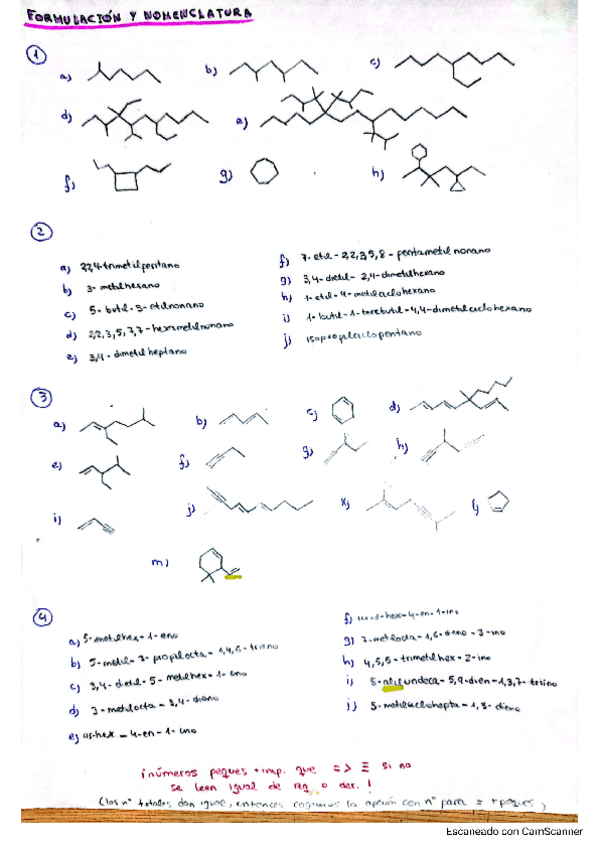 FORMULACIÓN Y NOMENCLATURA
1
a) b) c)
d) e)
f) g) h)
2
a) 2,2,4-trimetilpentano
b) 3-metilhexano
c) 5-butil-3-etilnonano
d) 2,2,3,5,7,7-hexametilnonano
e) 3,4-dimetilheptano
f) 7-etil-2,2,3,5,8-pentametilnonano
g) 3,4-dietil-2,4-dimetilhexano
h) 1-etil-4-metilciclohexano
i) 1-butil-1-tercbutil-4,4-dimetilciclohexano
j) isopropilciclopentano
3
a) b) c) d)
e) f) g) h)
i) j) k) l)
m)
4
a) 5-metilhex-1-eno
b) 5-metil-3-propilocta-1,4,6-trieno
c) 3,4-dietil-5-metilhex-1-eno
d) 3-metilocta-3,4-dieno
e) cis-hex-4-en-1-ino
f) hex-4-en-1-ino
g) 7-metilocta-1,6-dieno-3-ino
h) 4,5,5-trimetilhex-2-ino
i) 5-alilundeca-5,9-dien-1,3,7-triino
j) 5-metilciclohepta-1,3-dieno
¡números peques + imp. que = > ≡ si no
se leen igual de izq. o der.!
(los nº totales dan igual, entonces cogemos la opción con nº para = + peques)
Escaneado con CamScanner